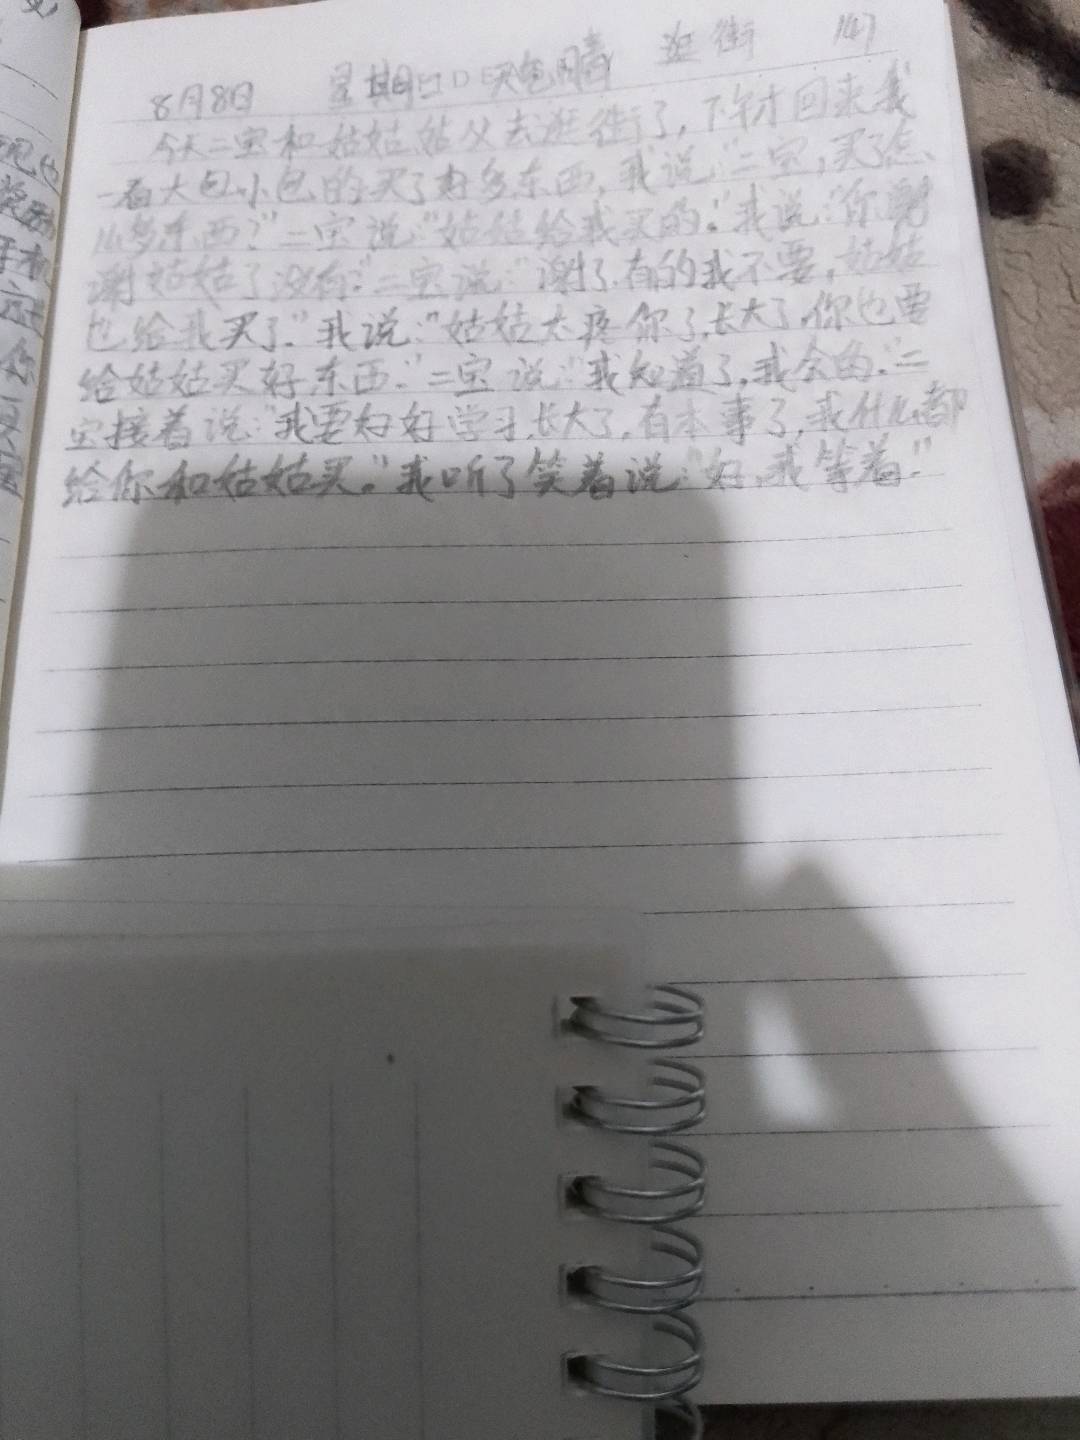 8月8日 星期日 天气晴 逛街 147
今天二宝和姑姑姑父去逛街了,下午才回来我
一看大包小包的买了好多东西,我说:"二宝,买了怎
么多东西?"二宝说:"姑姑给我买的."我说:"你谢
谢姑姑了没有."二宝说:"谢了.有的我不要,姑姑
也给我买了."我说:"姑姑太疼你了,长大了,你也要
给姑姑买好东西."二宝说:"我知道了,我会的."二
宝接着说:"我要好好学习,长大了,有本事了,我什么都
给你和姑姑买。"我听了笑着说:"好,我等着."